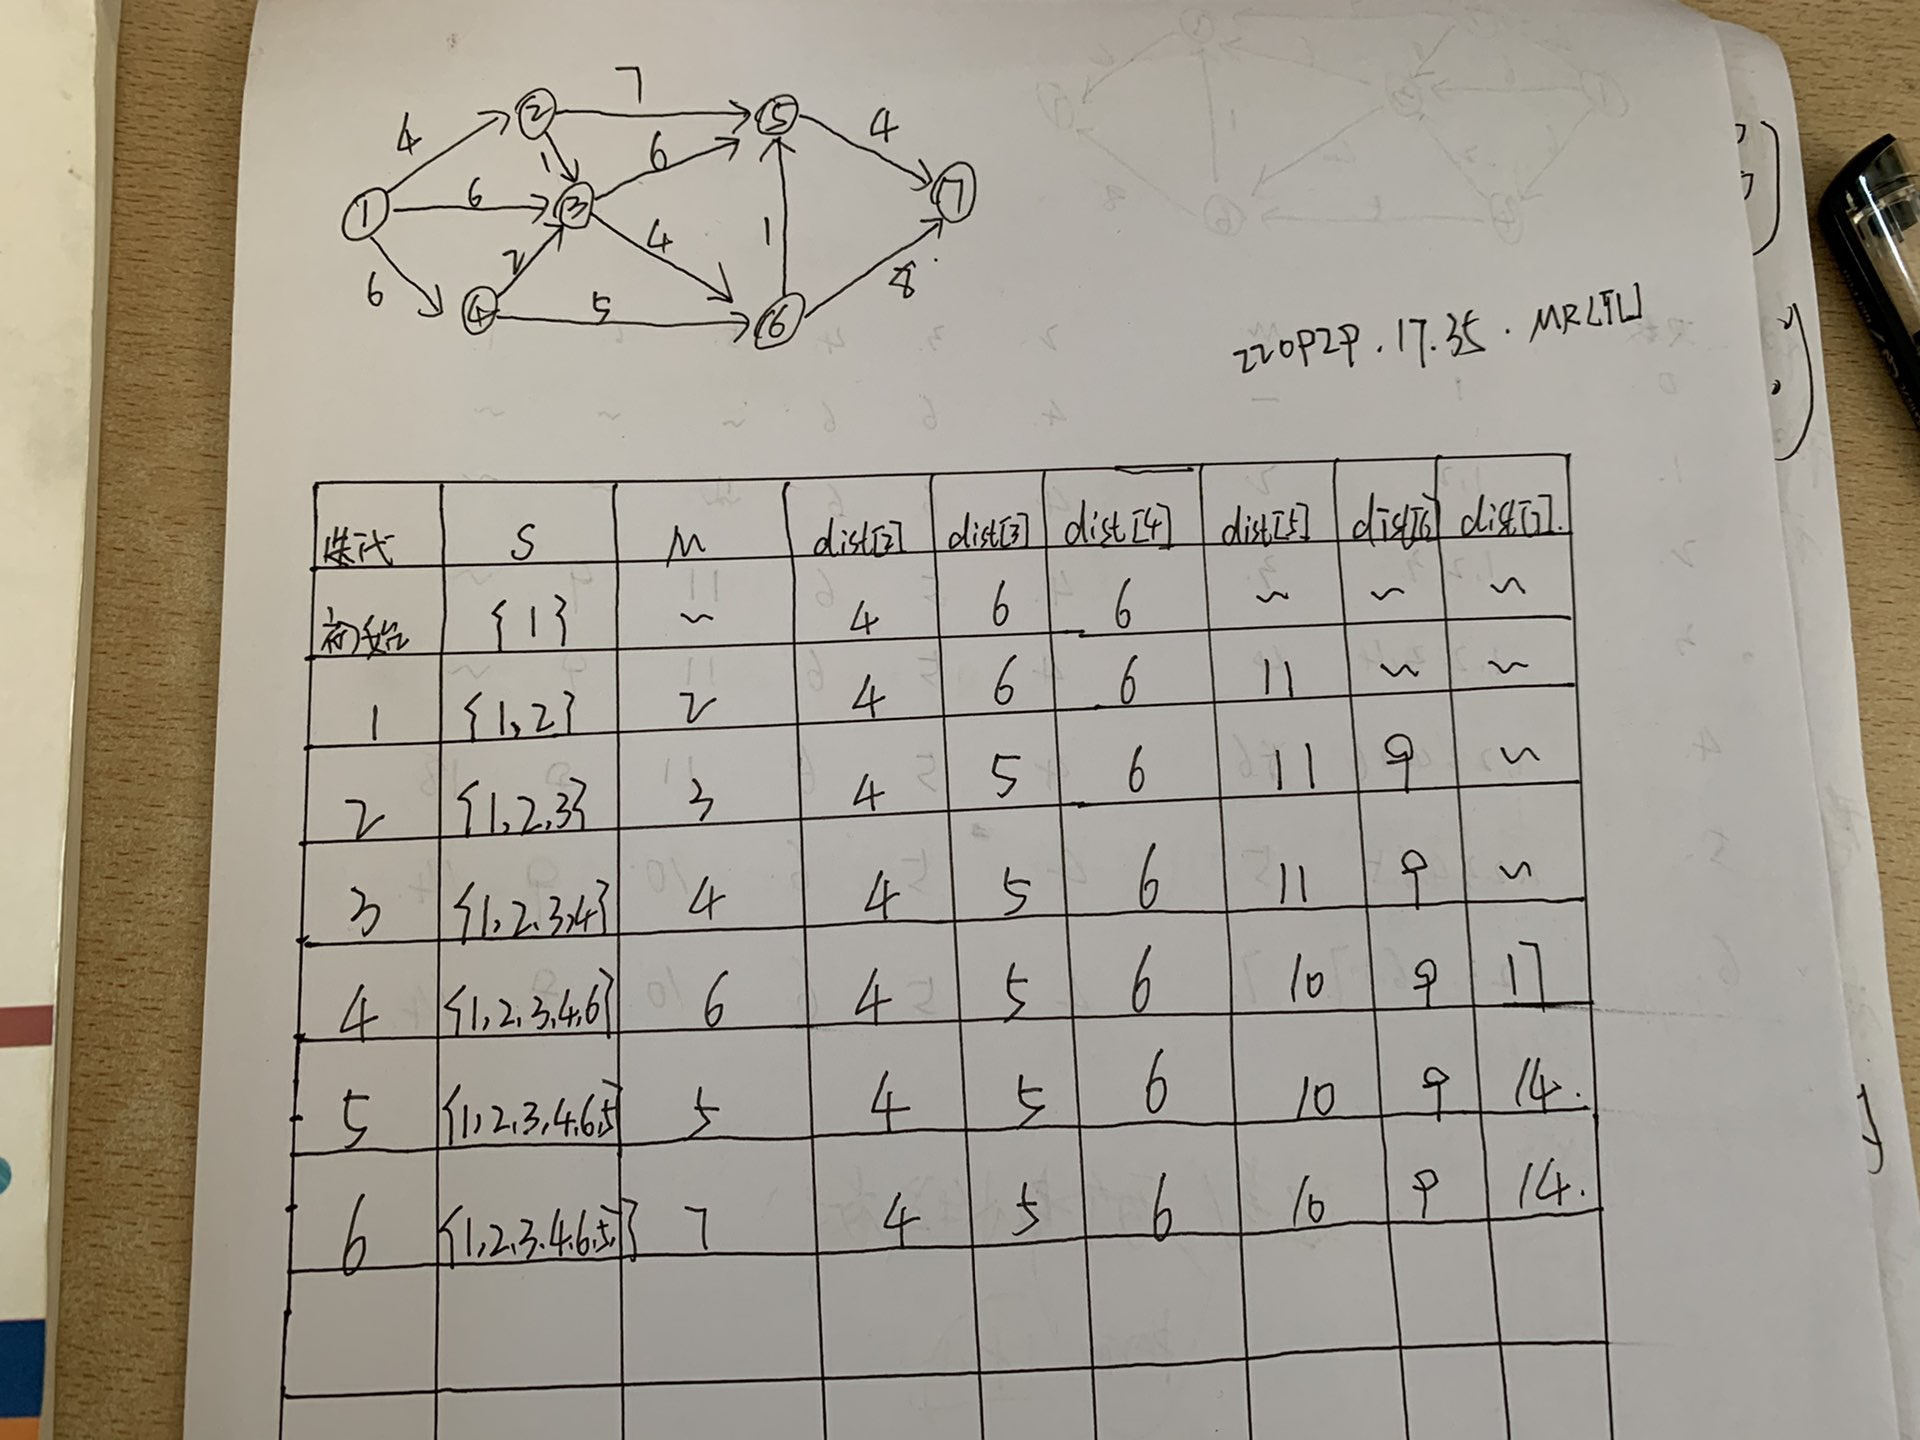 7
4 ② ⑤ 4
1 6
① 6 ③ ⑦
4 1
6 2 8
④ 5 ⑥
220929.17.35.
迭代 S M dist[2] dist[3] dist[4] dist[5] dist[6] dist[7].
初始 {1} ~ 4 6 6 ~ ~ ~
1 {1,2} 2 4 6 6 11 ~ ~
2 {1,2,3} 3 4 5 6 11 9 ~
3 {1,2,3,4} 4 4 5 6 11 9 ~
4 {1,2,3,4,6} 6 4 5 6 10 9 17
5 {1,2,3,4,6,5 5 4 5 6 10 9 14.
6 {1,2,3.4.6.5,} 7 4 5 6 10 9 14.